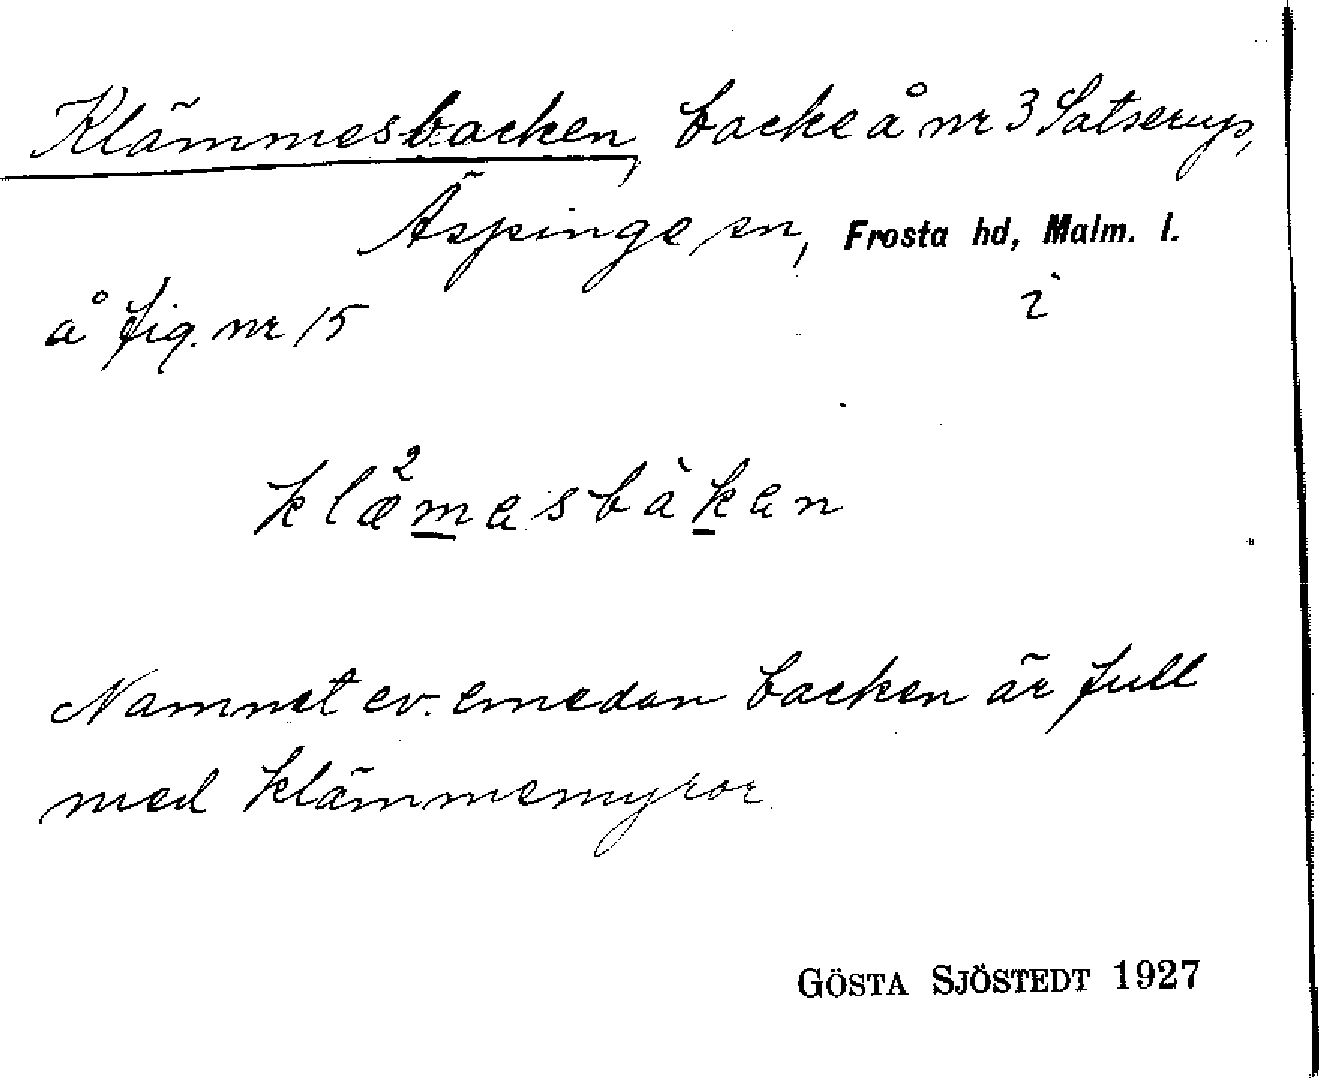 Klämmesbacken, backe å nr 3 Satserup,
Äspinge sn, Frosta hd, Malm. l.
å fig. nr 15
klæ̊²mesbàken
Namnet ev. emedan backen är full
med klämmemyror
GÖSTA SJÖSTEDT 1927